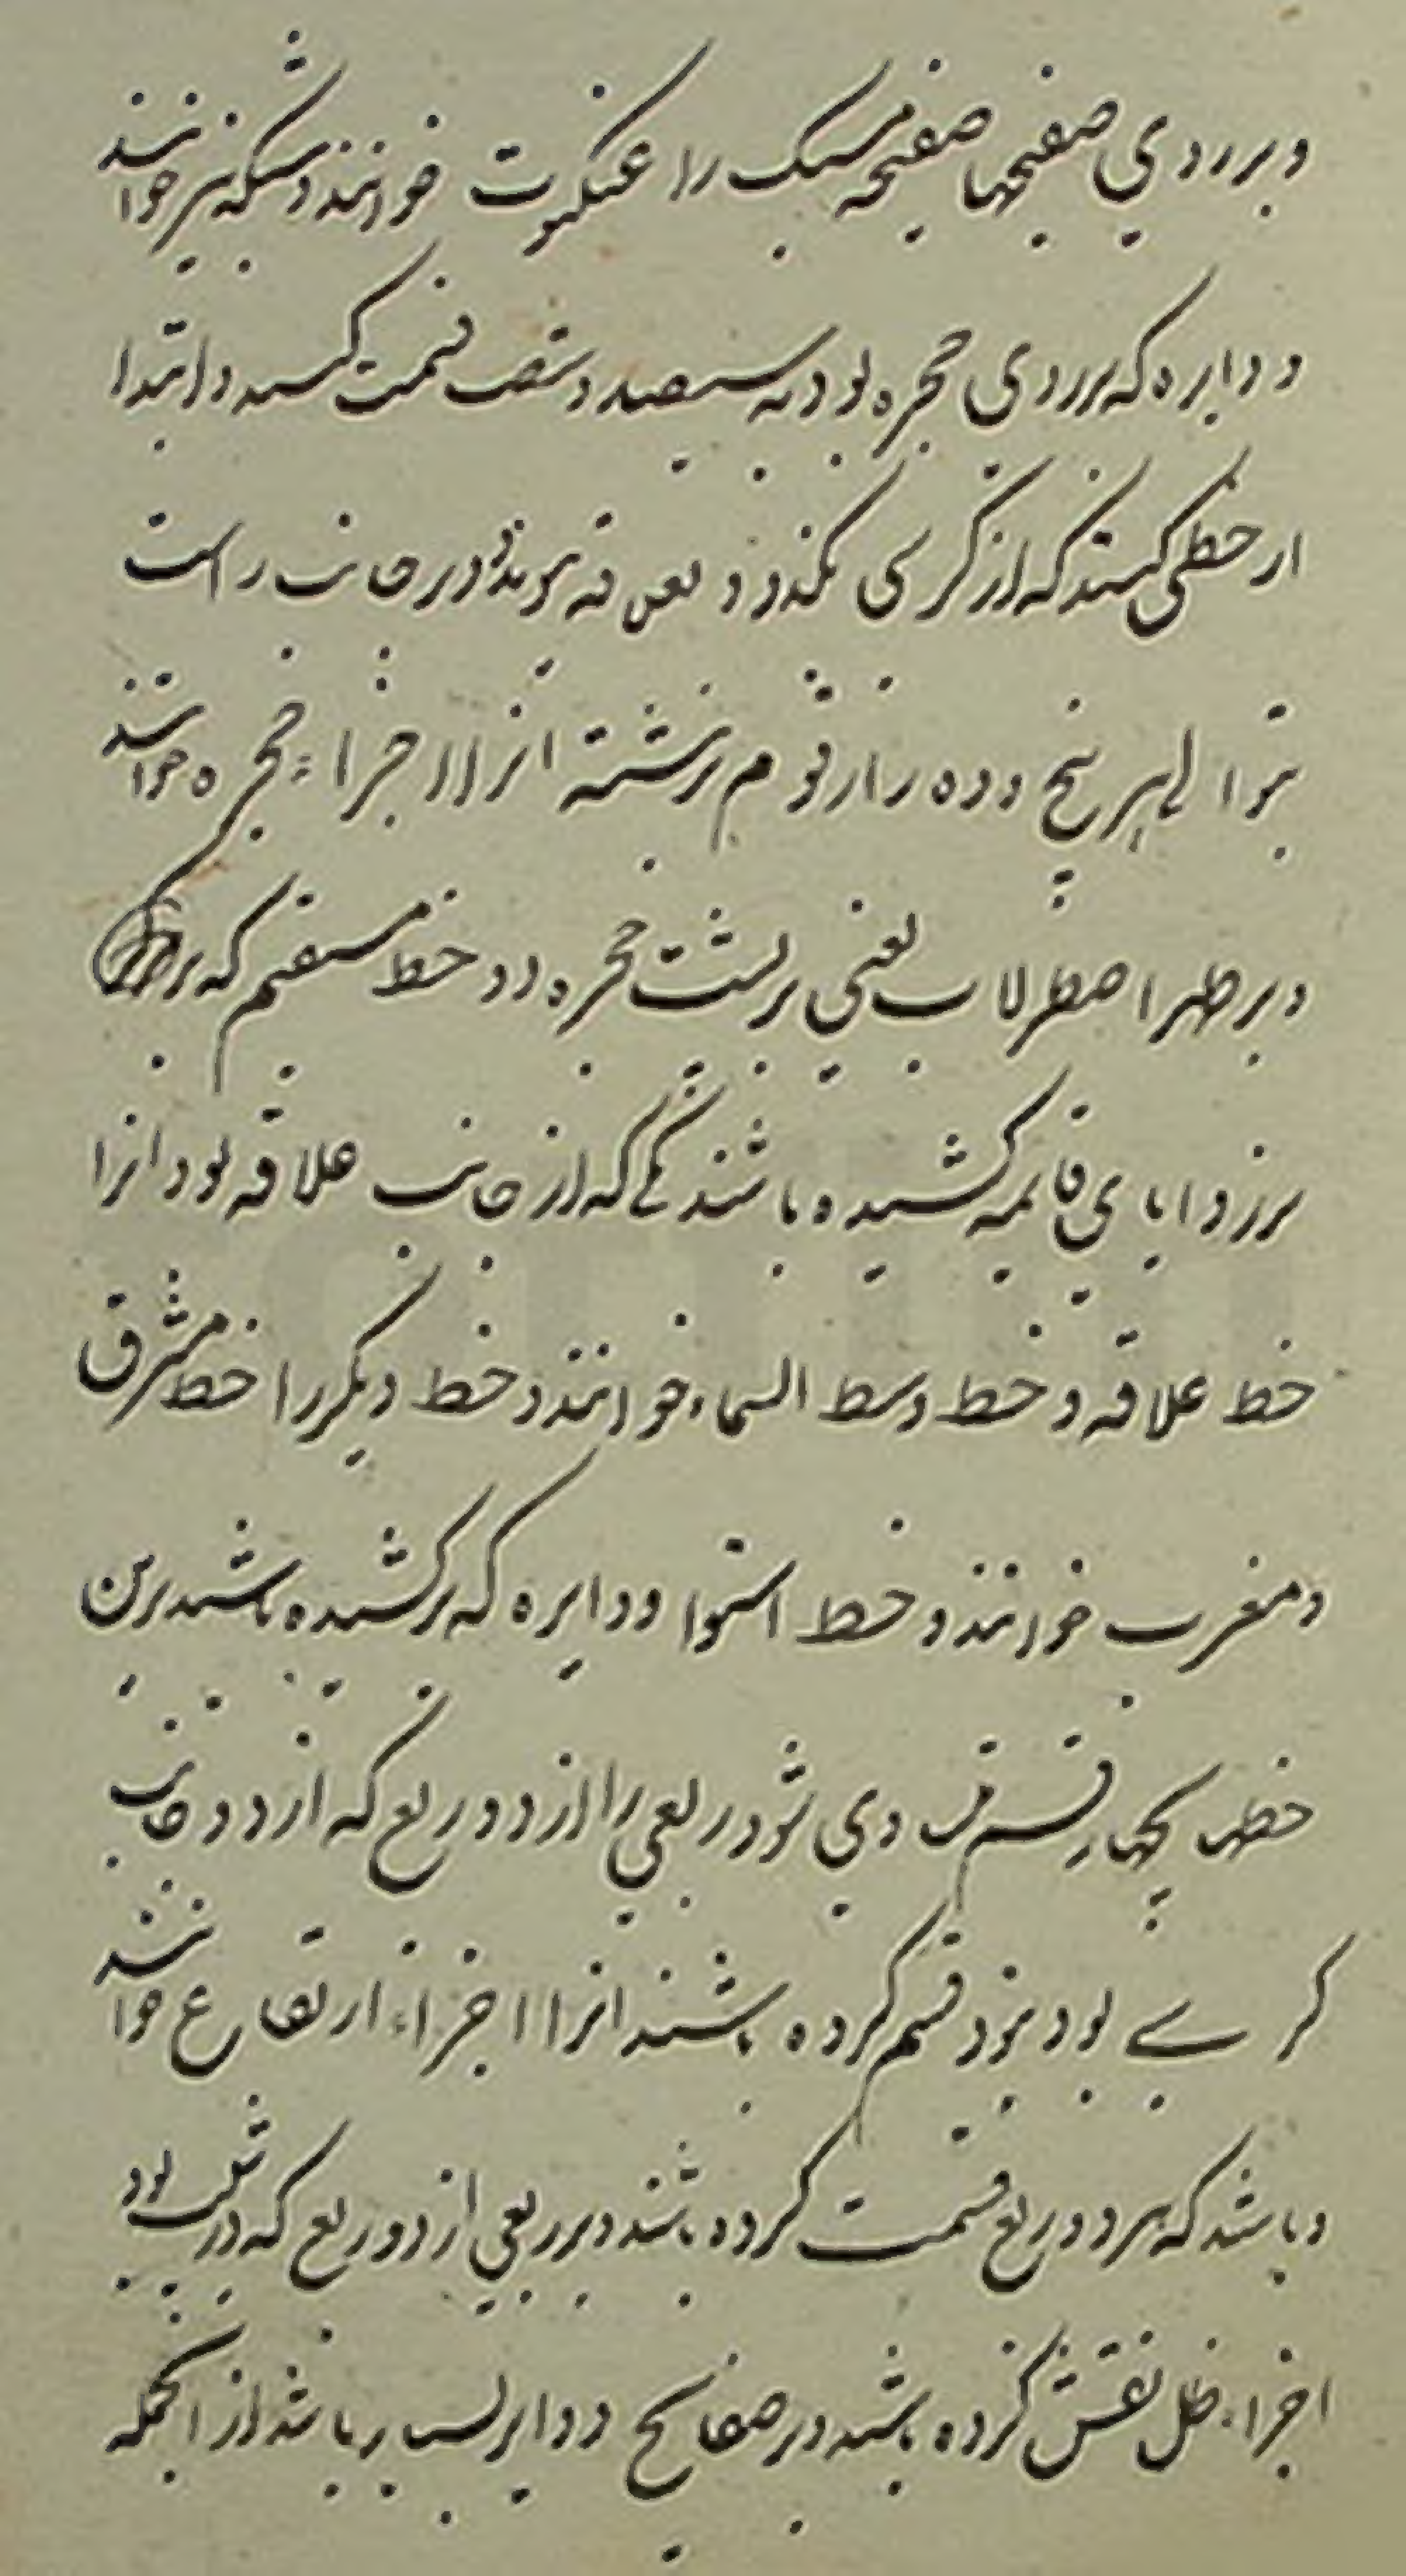 و بر روی صفیحها صفیحه مشبک را عنکبوت خوانند و شبکه نیز خوانند
و دایره که بر روی حجره بود به سیصد و شصت قسمت کنند و ابتدا
از خطی کنند که از کرسی بگذرد و بعلاقه پیوندد و در جانب راست
بتوالی هر پنج و ده را رقوم نوشته انرا اجزاء حجره خوانند
و بر ظهر اصطرلاب یعنی بر پشت حجره دو خط مستقیم که بر
بر زوایای قایمه کشیده باشند یکی که از جانب علاقه بود انرا
خط علاقه و خط وسط السماء خوانند و خط دیگر را خط مشرق
و مغرب خوانند و خط استوا و دایره که بر کشیده باشند برین
خطها بچهار قسم متساوی شود ربعی را از دو ربع که از دو جانب
کرسی بود بنود قسم کرده باشند انرا اجزاء ارتفاع خوانند
و باشد که هر دو ربع قسمت کرده باشند و بر ربعی از دو ربع که در شیب بود
اجزاء ظل نقش کرده باشند و در صفایح دوایر بسیار باشد از انجمله